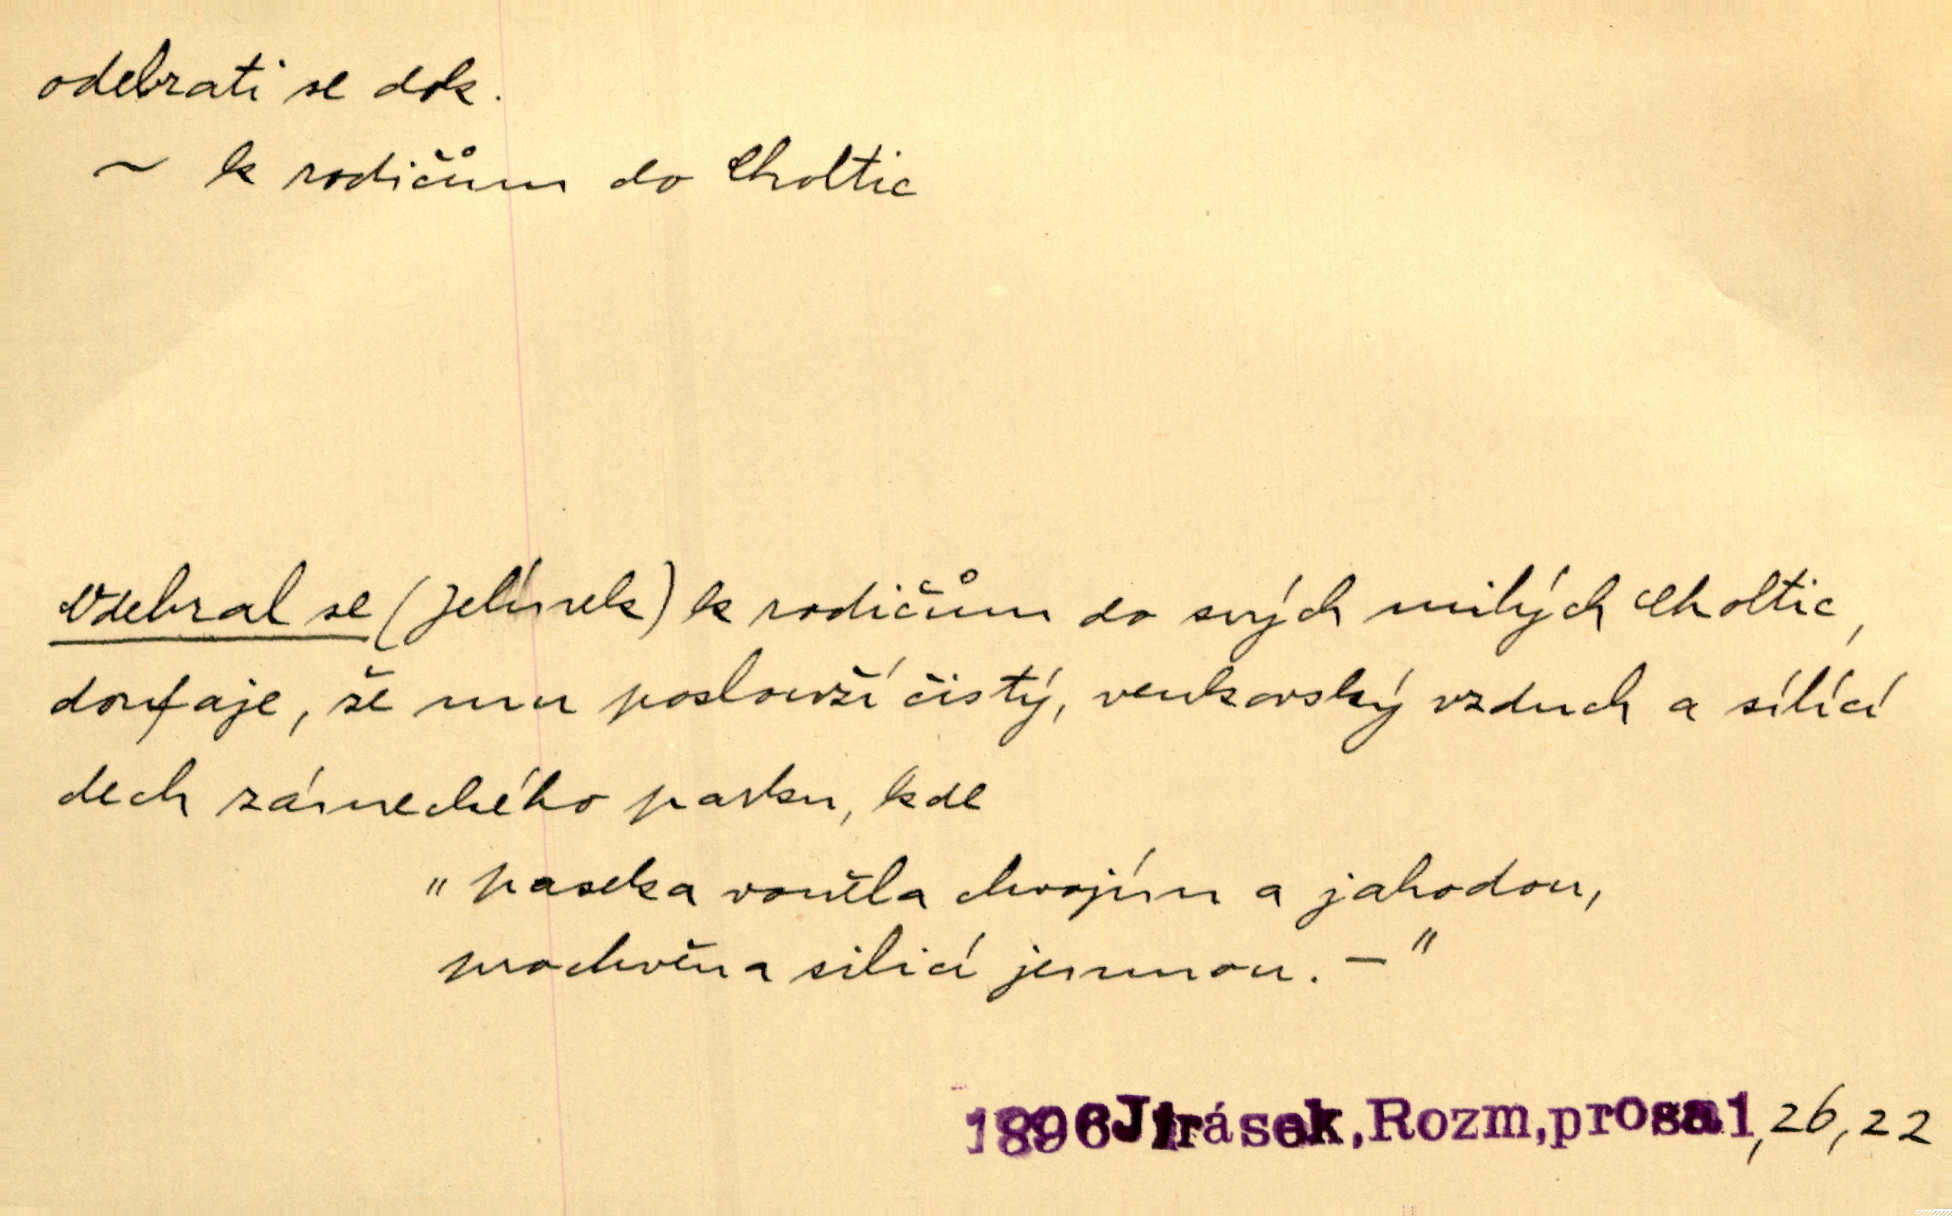 odebrati se dok.
~ k rodičům do Choltic
Odebral se (Jelínek) k rodičům do svých milých Choltic,
doufaje, že mu poslouží čistý, venkovský vzduch a sílící
dech zámeckého parku, kde
„paseka voněla chvojím a jahodou,
prochvěna silicí jemnou. — "
1896 Jirásek, Rozm, prosa 1, 26, 22